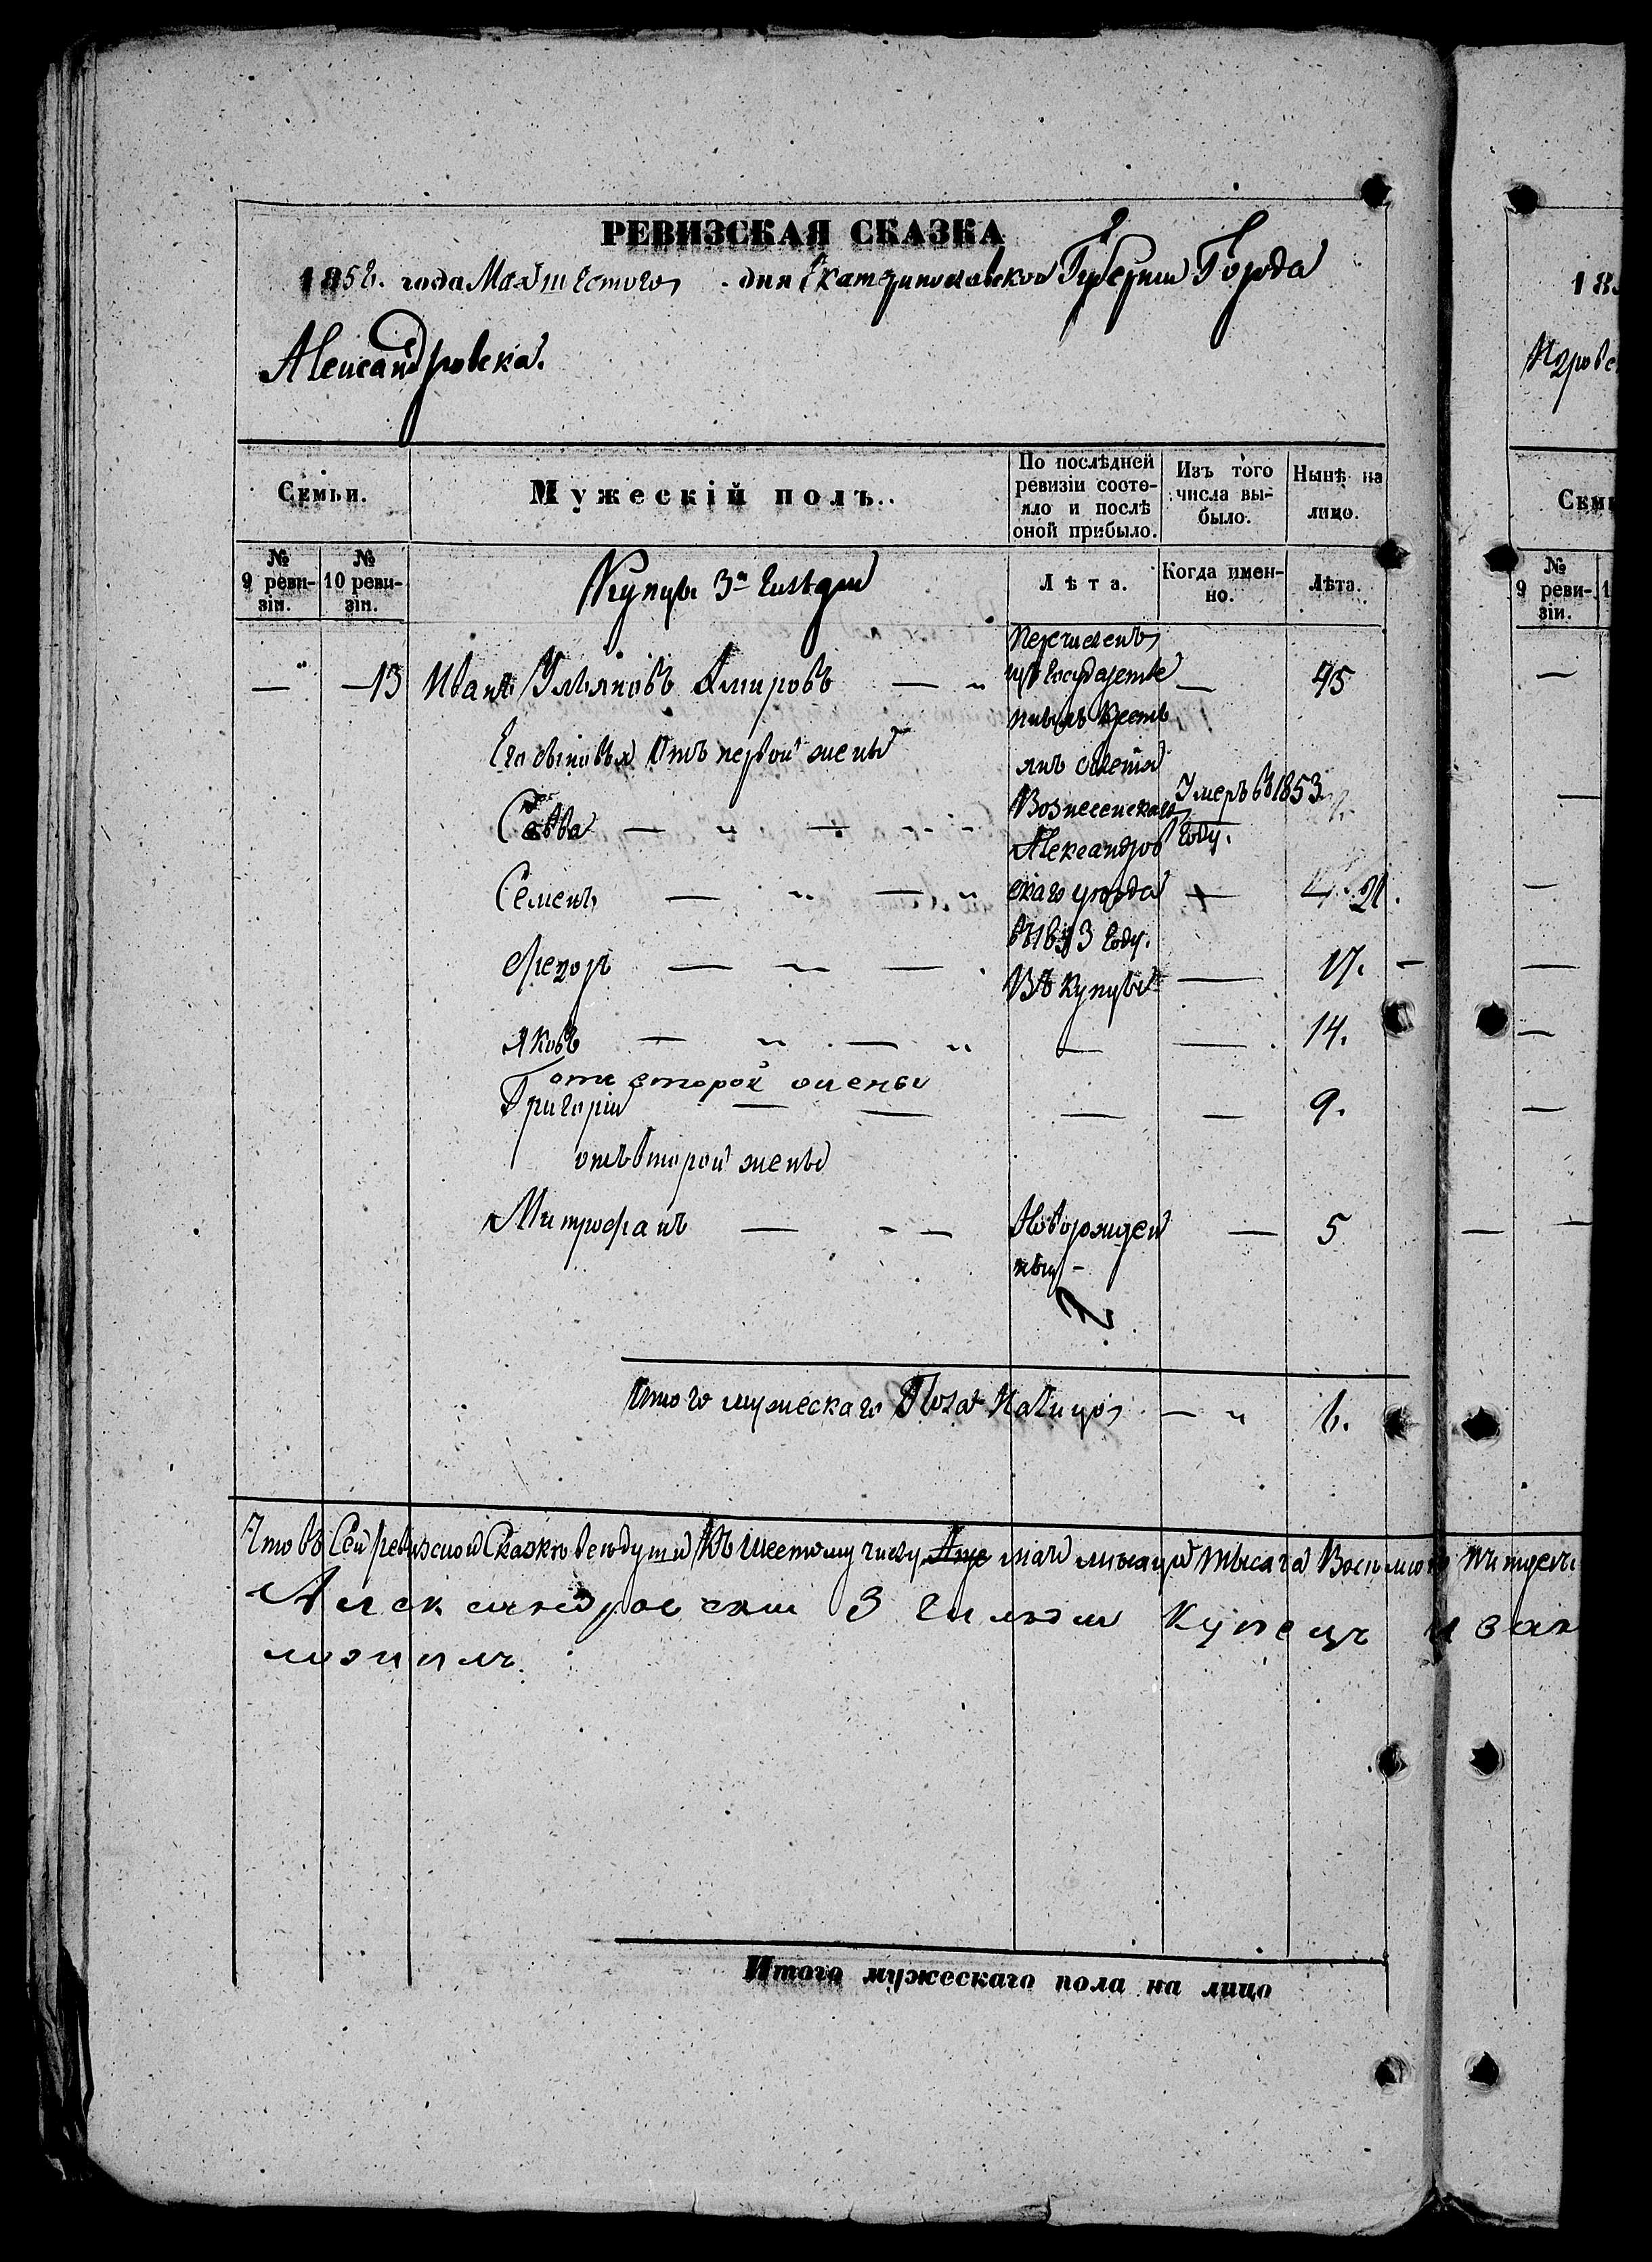 РЕВИЗСКАЯ СКАЗКА
1858. года Мая шестого дня Екатеринославской Губернии Города
Александровска.
Семьи.
Мужескій полъ.
По послѣдней ревизіи состояло и послѣ оной прибыло.
Изъ того числа выбыло.
Нынѣ на лицо.
№ 9 ревизіи.
№ 10 ревизіи.
Купцы 3й гильдии
Лѣта.
Когда именно.
Лѣта.
— — 13 Иванъ Ульяновъ — „ — 45
Перечисленъ
изъ Государстве
нныхъ Кресть
янъ
Вознесенскаго
Александров
скаго уезда
въ 1853 году.
Въ купцы
Его сыновья Отъ первой жены
Савва — „ — „ Умеръ въ 1853 году.
Семенъ — „ — „ — 21.
Федоръ — „ — — 17. —
Яковъ — „ — „ — — 14.
отъ второй жены
Григорій — — — — 9.
отъ второй жены
Митрофанъ — - — Новорожден
ный - — 5
Итого мужескаго Пола На лицо — „ 6.
Что въ Сей ревизской Сказке Къ шестому числу маи месяца тысяча Восемсотъ
Александровский 3 гильдии Купецъ Иван
18
Семь
№ 9 ревизіи.
Итого мужескаго пола на лицо